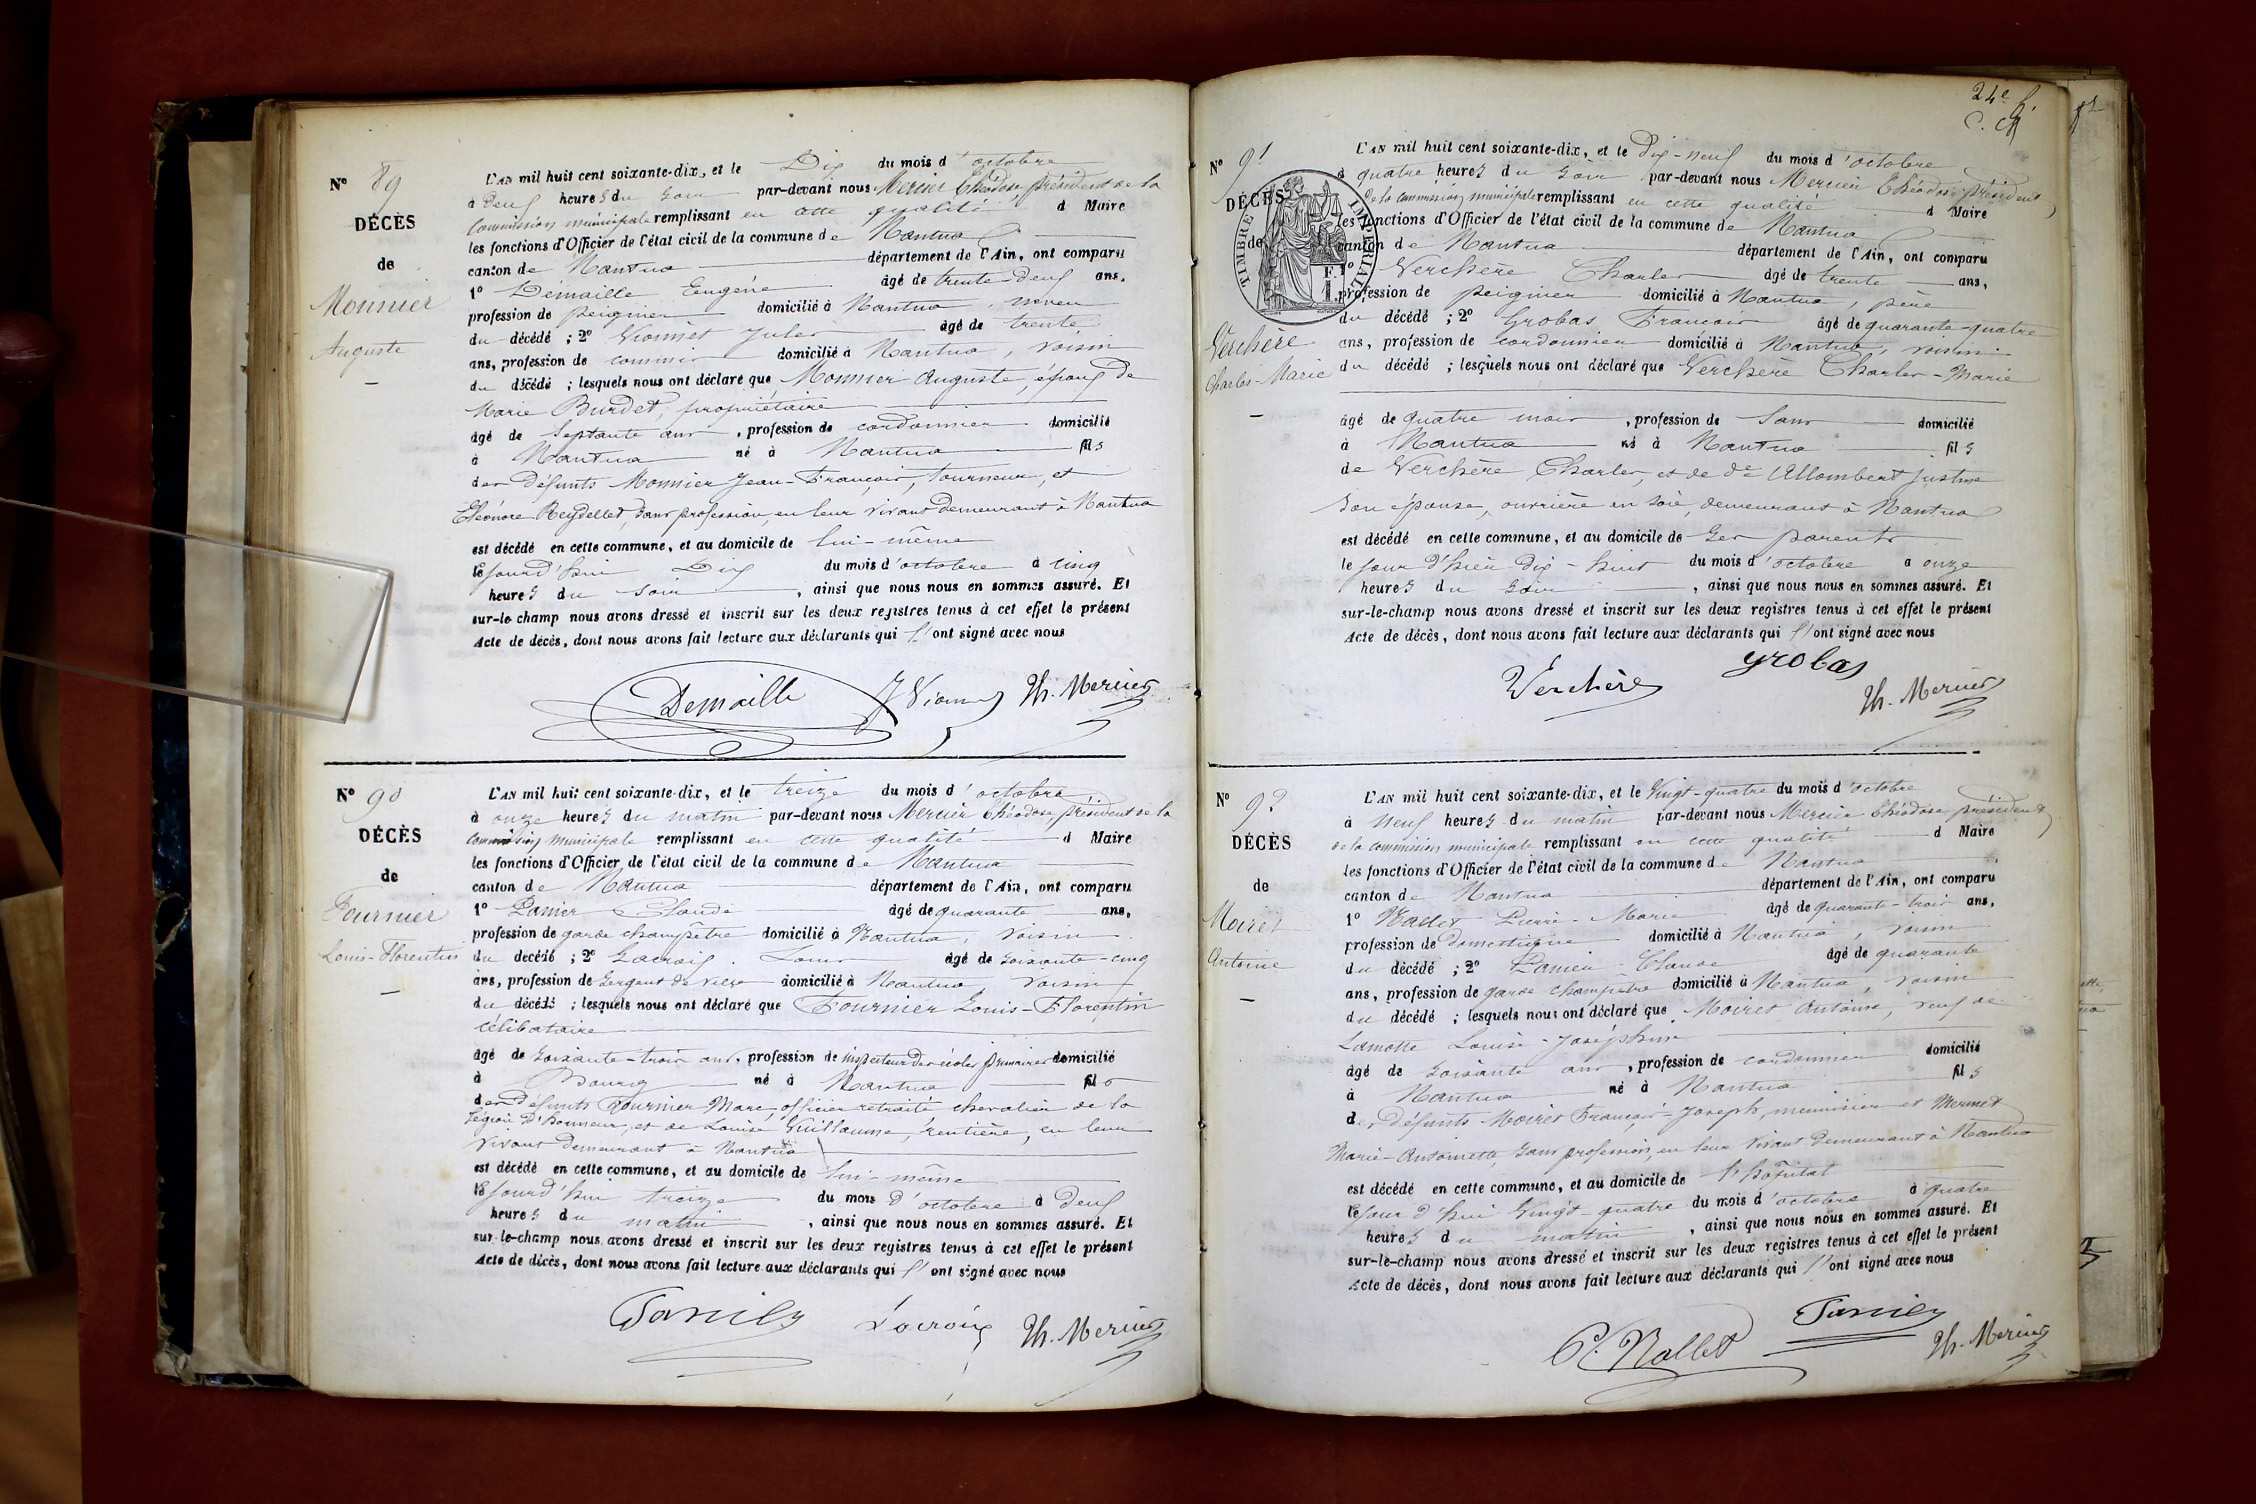 N° 89
DÉCÈS
de
Monnier
Auguste
L'AN mil huit cent soixante-dix, et le Dix du mois d'octobre
à Deux heures du soir par-devant nous Mercier Théodose président de la
Commission municipale remplissant en cette qualité d Maire
les fonctions d'Officier de l'état civil de la commune de Nantua
canton de Nantua département de l'Ain, ont comparu
1° Démaille Eugène âgé de trente-deux ans,
profession de peignier domicilié à Nantua, neveu
du décédé ; 2° Vionnet Jules âgé de trente
ans, profession de commis domicilié à Nantua, voisin
du décédé ; lesquels nous ont déclaré que Monnier Auguste, époux de
Marie Burdet, propriétaire
âgé de septante ans, profession de cordonnier domicilié
à Nantua né à Nantua fils
des défunts Monnier Jean-François, tourneur, et
Eléonore Reydellet, sans profession, en leur vivant demeurant à Nantua
est décédé en cette commune, et au domicile de lui-même
le jourd'hui Dix du mois d'octobre à cinq
heures du soir, ainsi que nous nous en sommes assuré. Et
sur-le-champ nous avons dressé et inscrit sur les deux registres tenus à cet effet le présent
Acte de décès, dont nous avons fait lecture aux déclarants qui l'ont signé avec nous
Demaille J Vionnet Th. Mercier
N° 90
DÉCÈS
de
Fournier
Louis-Florentin
L'AN mil huit cent soixante-dix, et le treize du mois d'octobre
à onze heures du matin par-devant nous Mercier Théodose président de la
commission municipale remplissant en cette qualité d Maire
les fonctions d'Officier de l'état civil de la commune de Nantua
canton de Nantua département de l'Ain, ont comparu
1° Panier Claude âgé de quarante ans,
profession de garde champêtre domicilié à Nantua, voisin
du décédé ; 2° Lacroix Louis âgé de soixante-cinq
ans, profession de sergent de ville domicilié à Nantua, voisin
du décédé ; lesquels nous ont déclaré que Fournier Louis-Florentin
célibataire
âgé de soixante-trois ans, profession de inspecteur des écoles primaires domicilié
à Bourg né à Nantua fils
des défunts Fournier Marc, officier retraité chevalier de la
légion d'honneur, et de Louise Guillaume, rentière, en leur
vivant demeurant à Nantua
est décédé en cette commune, et au domicile de lui-même
le jourd'hui treize du mois d'octobre à Deux
heures du matin, ainsi que nous nous en sommes assuré. Et
sur-le-champ nous avons dressé et inscrit sur les deux registres tenus à cet effet le présent
Acte de décès, dont nous avons fait lecture aux déclarants qui l'ont signé avec nous
Panier Lacroix Th. Mercier
24e
N° 91
DÉCÈS
de
TIMBRE IMPERIAL
Verchère
Charles-Marie
L'AN mil huit cent soixante-dix, et le Dix-neuf du mois d'octobre
à quatre heures du soir par-devant nous Mercier Théodose président
de la commission municipale remplissant en cette qualité d Maire
les fonctions d'Officier de l'état civil de la commune de Nantua
canton de Nantua département de l'Ain, ont comparu
1° Verchère Charles âgé de trente ans,
profession de peignier domicilié à Nantua, père
du décédé ; 2° Grobas François âgé de quarante-quatre
ans, profession de cordonnier domicilié à Nantua, voisin
du décédé ; lesquels nous ont déclaré que Verchère Charles-Marie
âgé de quatre mois, profession de sans domicilié
à Nantua né à Nantua fils
de Verchère Charles, et de de Allombert Justine
son épouse, ouvrière en soie, demeurant à Nantua
est décédé en cette commune, et au domicile de ses parents
le jour d'hier dix-huit du mois d'octobre à onze
heures du soir, ainsi que nous nous en sommes assuré. Et
sur-le-champ nous avons dressé et inscrit sur les deux registres tenus à cet effet le présent
Acte de décès, dont nous avons fait lecture aux déclarants qui l'ont signé avec nous
Verchère grobas
Th. Mercier
N° 92
DÉCÈS
de
Moiret
Antoine
L'AN mil huit cent soixante-dix, et le Vingt-quatre du mois d'octobre
à Neuf heures du matin par-devant nous Mercier Théodose président
de la commission municipale remplissant en cette qualité d Maire
les fonctions d'Officier de l'état civil de la commune de Nantua
canton de Nantua département de l'Ain, ont comparu
1° Nallet Pierre-Marie âgé de quarante-trois ans,
profession de domestique domicilié à Nantua, voisin
du décédé ; 2° Panier Claude âgé de quarante
ans, profession de garde champêtre domicilié à Nantua, voisin
du décédé ; lesquels nous ont déclaré que Moiret Antoine, veuf de
Lamotte Louise-Joséphine
âgé de soixante ans, profession de cordonnier domicilié
à Nantua né à Nantua fils
des défunts Moiret François-Joseph, menuisier et Mermet
Marie-Antoinette, sans profession, en leur vivant demeurant à Nantua
est décédé en cette commune, et au domicile de l'hôpital
le jour d'hui Vingt-quatre du mois d'octobre à quatre
heures du matin, ainsi que nous nous en sommes assuré. Et
sur-le-champ nous avons dressé et inscrit sur les deux registres tenus à cet effet le présent
Acte de décès, dont nous avons fait lecture aux déclarants qui l'ont signé avec nous
P. Nallet Panier
Th. Mercier